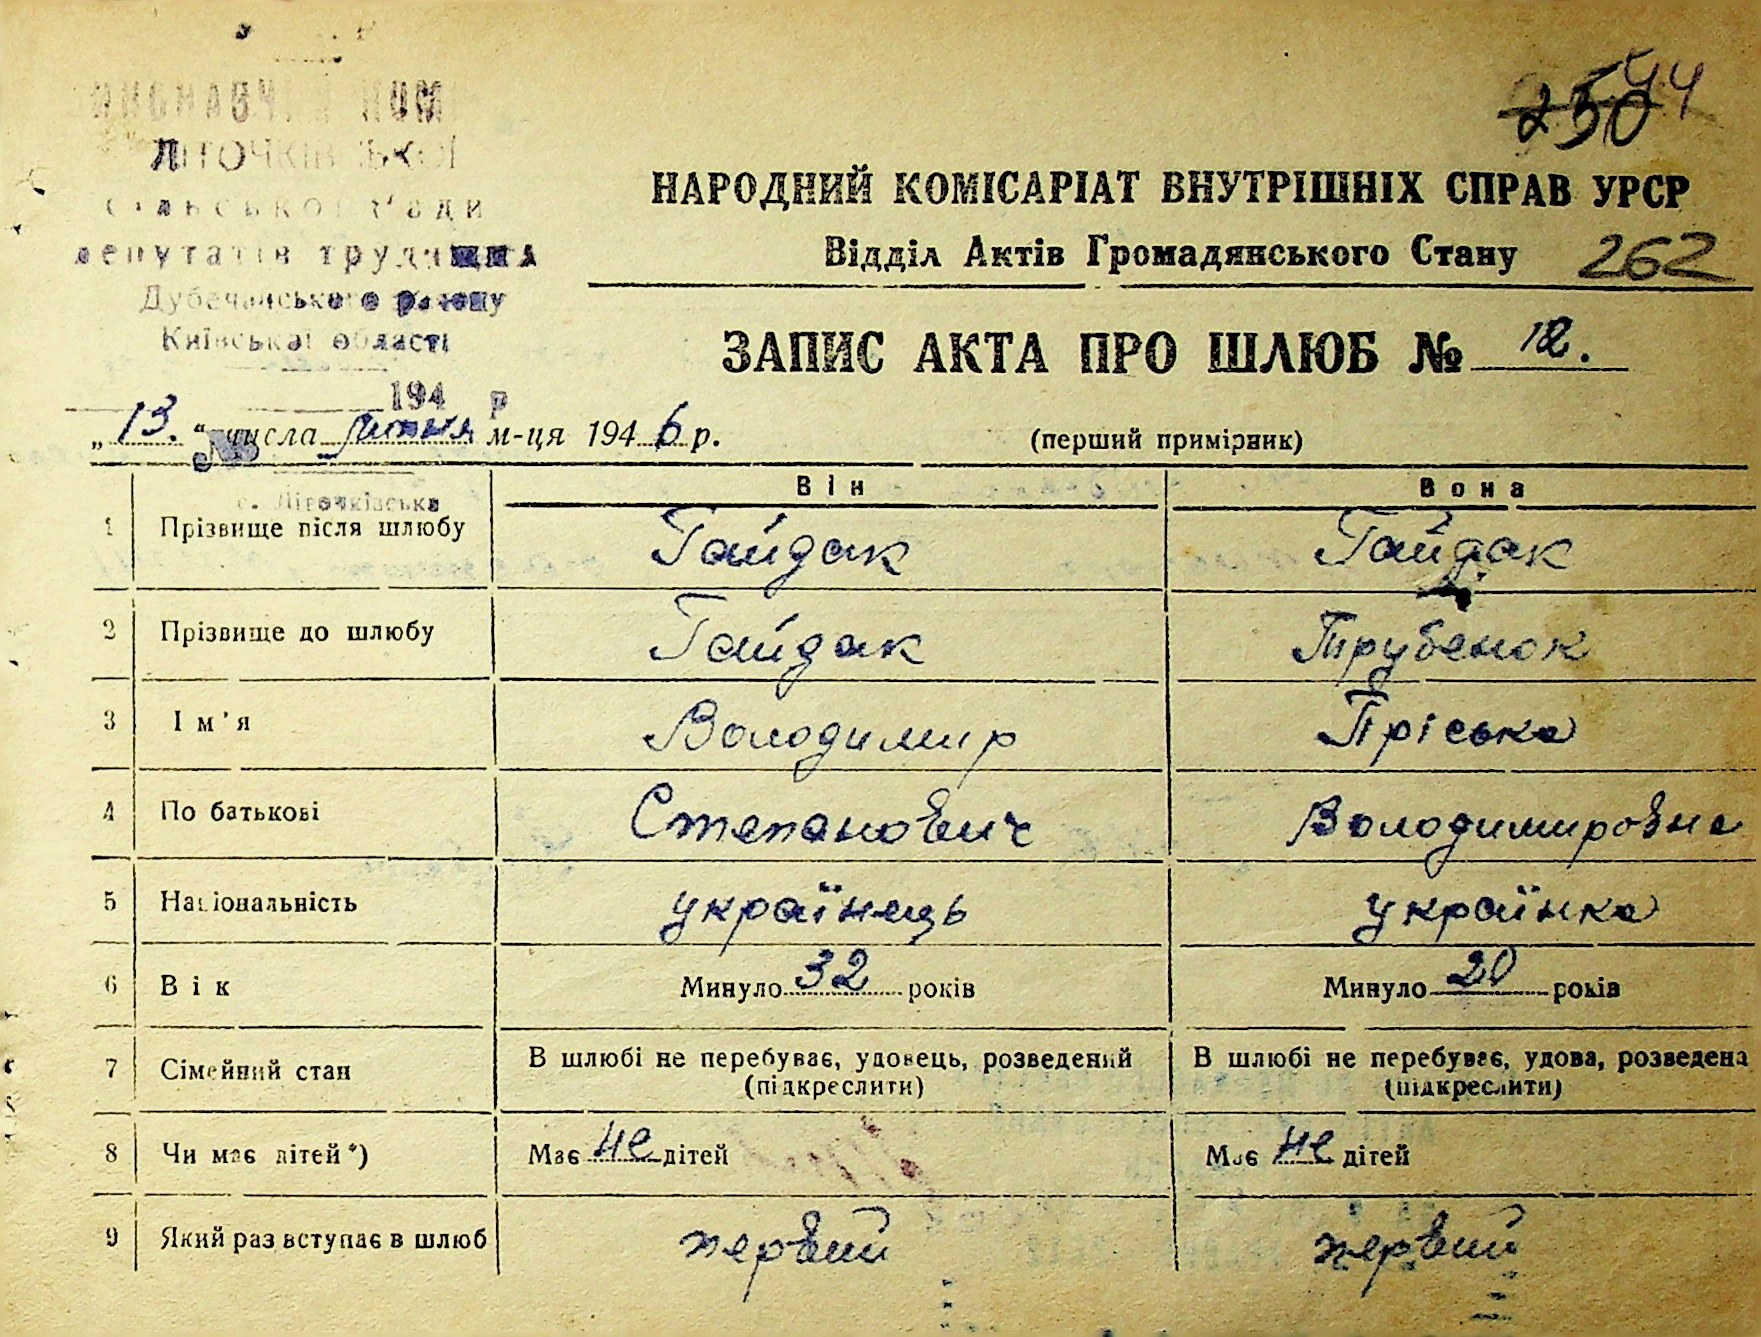 544
250
ЛІТОЧКІВСЬКОЇ
сільської ради
депутатів трудящих
Дубечанського району
Київської області
194 р
НАРОДНИЙ КОМІСАРІАТ ВНУТРІШНІХ СПРАВ УРСР
Відділ Актів Громадянського Стану 262
ЗАПИС АКТА ПРО ШЛЮБ № 12.
„13.“ числа м-ця 1946 р. (перший примірник)
№
с. Літочківська
Він Вона
1 Прізвище після шлюбу Гайдак Гайдак
2 Прізвище до шлюбу Гайдак Трубенок
3 Ім'я Володимир Пріська
4 По батькові Степанович Володимировна
5 Національність українець українка
6 Вік Минуло 32 років Минуло 20 років
7 Сімейний стан В шлюбі не перебуває, удовець, розведений В шлюбі не перебуває, удова, розведена
(підкреслити) (підкреслити)
8 Чи має дітей*) Має не дітей Має не дітей
9 Який раз вступає в шлюб первий первий